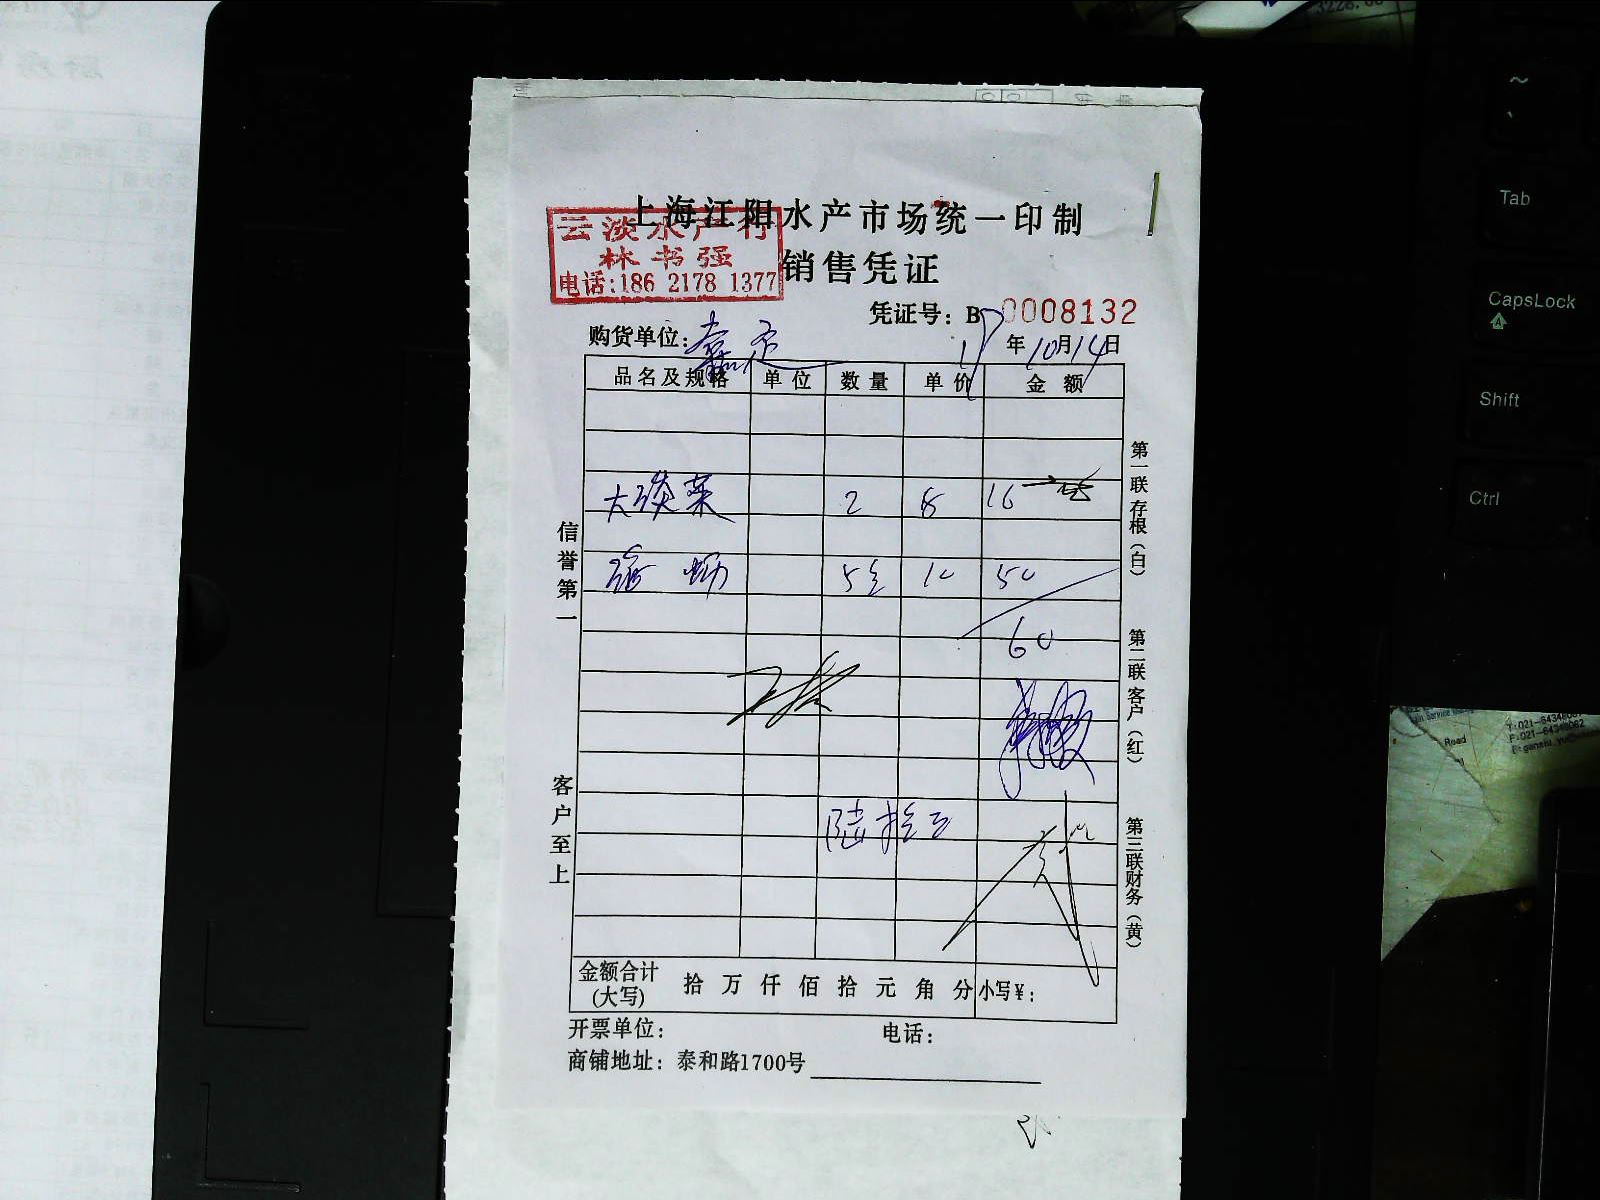 上海江阳水产市场统一印制
云淡水产行
林书强
电话:186 2178 1377
销售凭证
凭证号: B 0008132
购货单位: 嘉定
17年10月14日
品名及规格 单位 数量 单价 金额
2 8 16
5 10 50
60
陆拾
金额合计(大写) 拾 万 仟 佰 拾 元 角 分 小写¥:
开票单位: 电话:
商铺地址: 泰和路1700号
信誉第一
客户至上
第一联存根(白)
第二联客户(红)
第三联财务(黄)
~
Tab
CapsLock
Shift
Ctrl